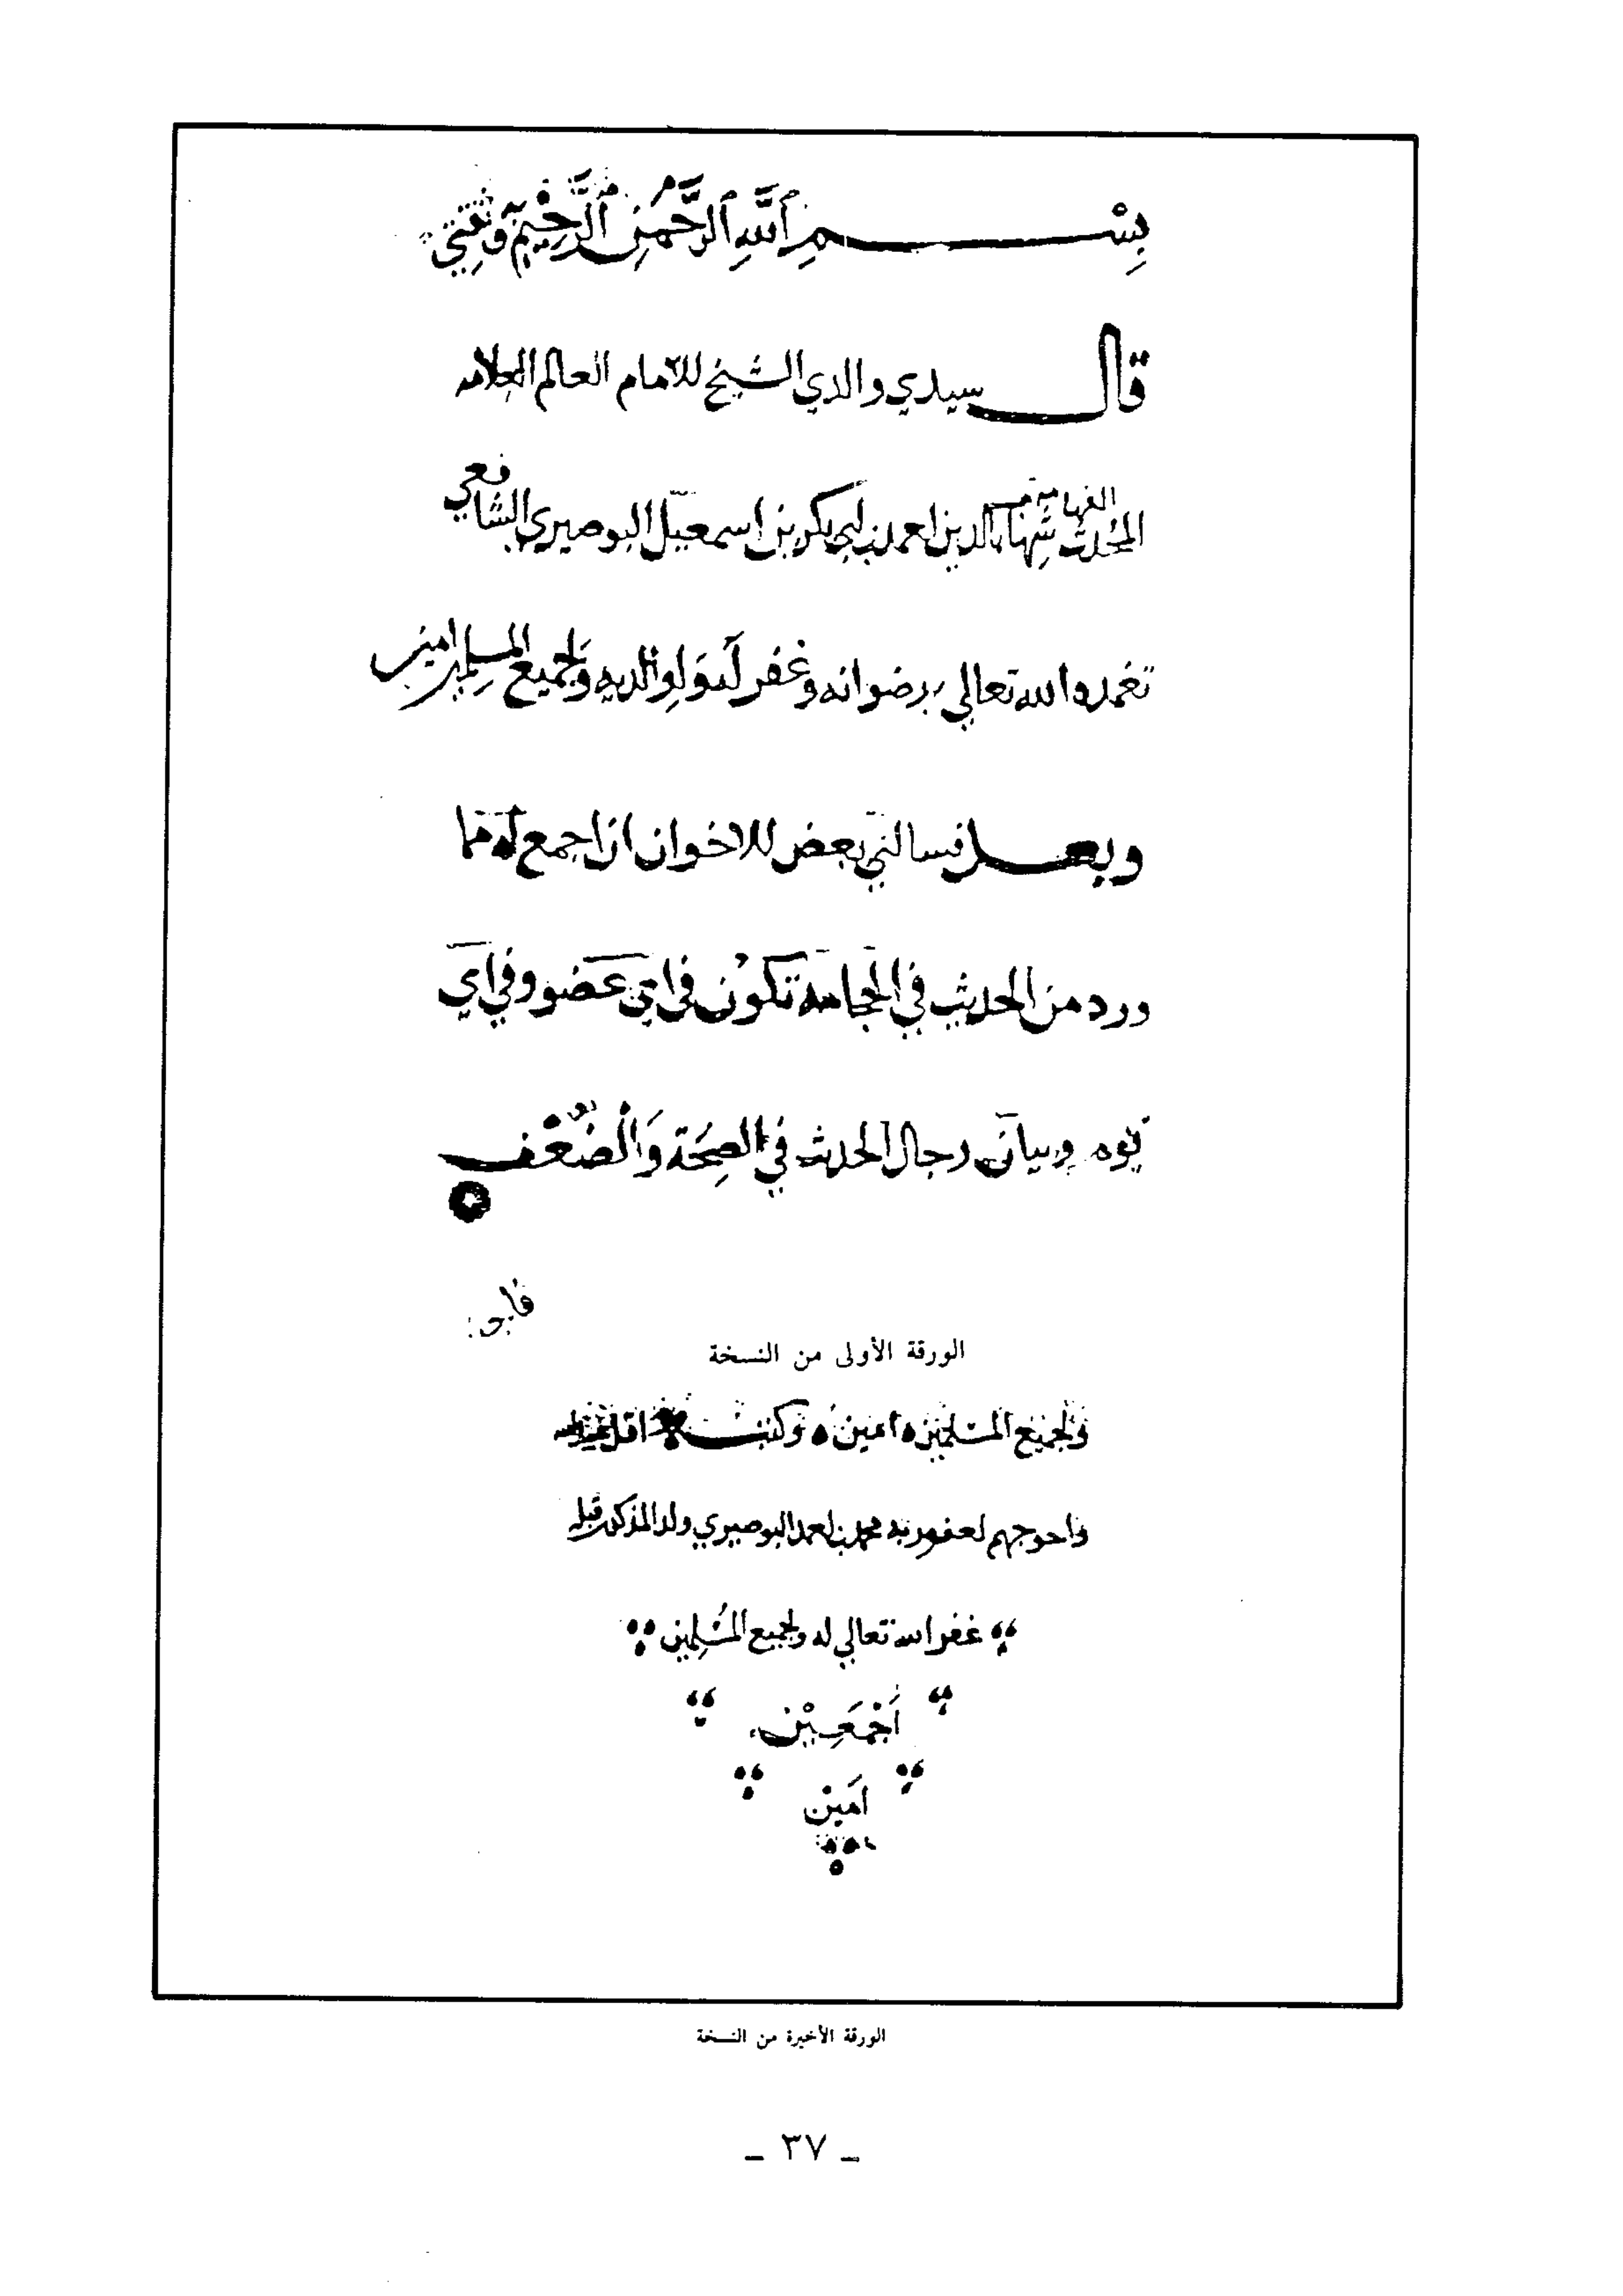 بِسْــمِ ٱللَّهِ ٱلرَّحْمٰنِ ٱلرَّحِيْمِ وثقتي
قال سيدي والدي الشيخ الامام العالم العلامه
الفهامه
المحدث شهاب الدين احمد بن ابي بكر بن اسمعيل البوصيري الشافعي
تغمده الله تعالي برضوانه وغفر له ولوالديه ولجميع المسلمين امين
وبعد فسالني بعض الاخوان ان اجمع له مما
ورد من الحديث في الحجامة تكون في اي عضو وفي اي
يوم وبيان رجال الحديث في الصحة والضعف
الورقة الأولى من النسخة
ولجميع المسلمين ه امين ه وكتب اقل
واحوجهم لعفو ربه محمد بن احمد البوصيري ولد المذكور قبله
غفر الله تعالي له ولجميع المسلمين
أَجْمَعِيْن
امَيْن
الورقة الأخيرة من النسخة
ـ ٣٧ ـ